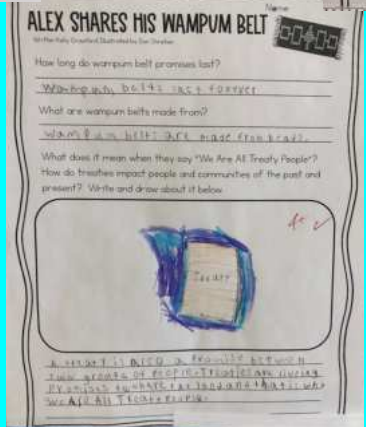 Name
ALEX SHARES HIS WAMPUM BELT
Written Kelly Crawford, Illustrated by Don
How long do wampum belt promises last?
Wampum belts last forever
What are wampum belts made from?
Wampum belts are made from beads.
What does it mean when they say "We Are All Treaty People"?
How do treaties impact people and communities of the past and
present? Write and draw about it below
Treaty
A treaty is also a promise between
two groups of people. Treaties are
Promises to share the land and that is why
We Are All Treaty People.